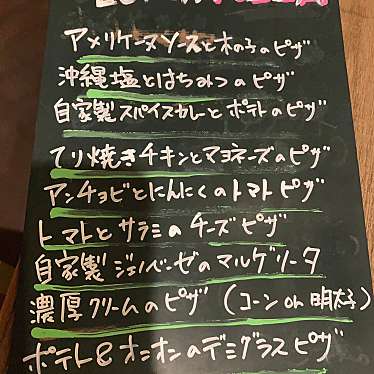 アメリケーヌソースと木の子のピザ
沖縄塩とはちみつのピザ
自家製スパイスカレーとポテトのピザ
てり焼きチキンとマヨネーズのピザ
アンチョビとにんにくのトマトピザ
トマトとサラミのチーズピザ
自家製ジェノベーゼのマルゲリータ
濃厚クリームのピザ（コーンor明太子）
ポテト&オニオンのデミグラスピザ